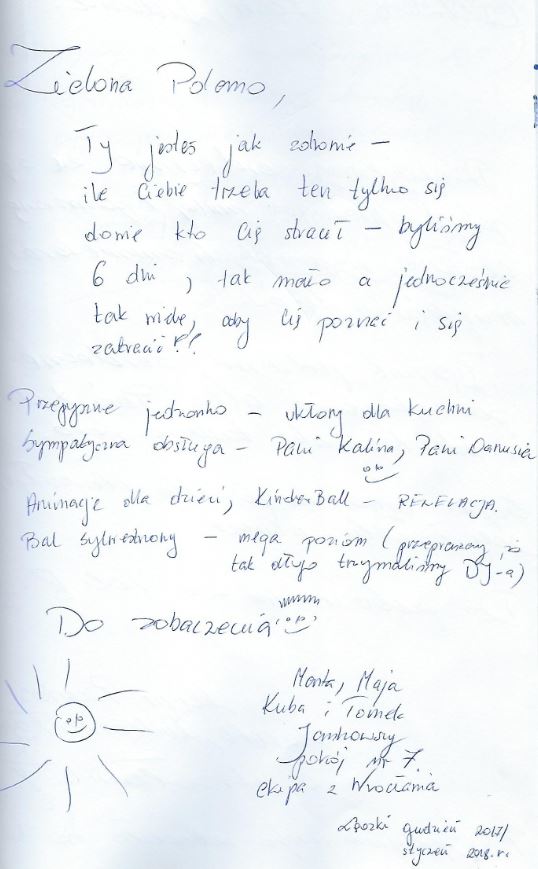 Zielona Polano,
Ty jesteś jak zdrowie –
ile Ciebie trzeba ten tylko się
dowie kto Cię stracił – byliśmy
6 dni, tak mało a jednocześnie
tak wiele, aby Cię poznać i się
zatracić!!
Przepyszne jedzonko – ukłony dla kuchni
Sympatyczna obsługa – Pani Kalina, Pani Danusia
Animacje dla dzieci, KinderBall – REWELACJA.
Bal sylwestrowy – mega poziom (przepraszamy, że
tak długo trzymaliśmy DJ-a)
Do zobaczenia
Marta, Maja
Kuba i Tomek
pokój nr 7.
ekipa z Wrocławia
grudzień 2017/
styczeń 2018.r.